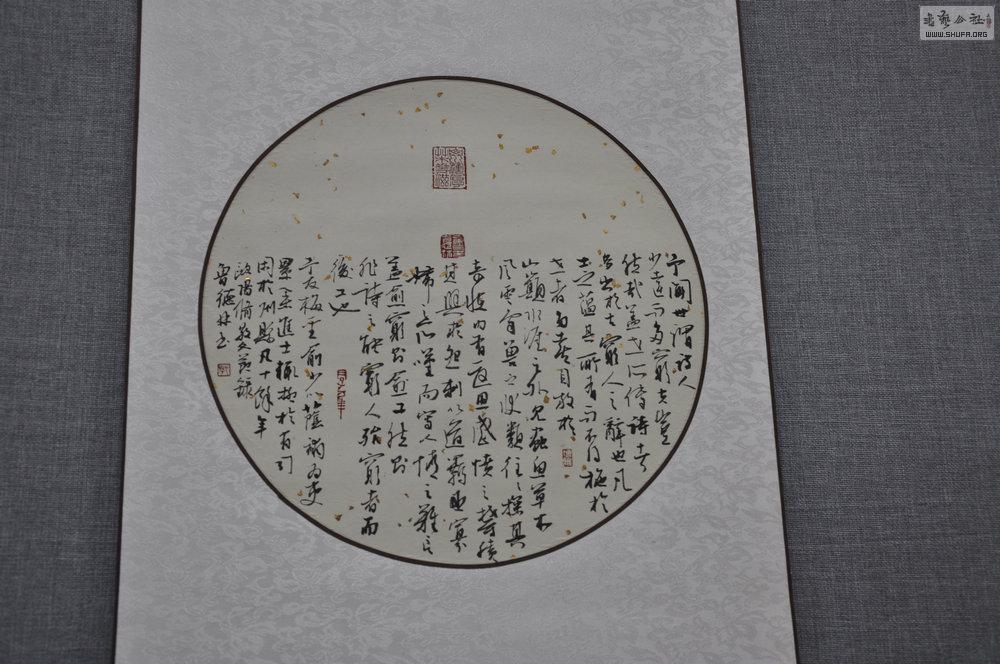 予聞世謂詩人
少達而多窮夫豈
然哉蓋世所傳詩者
多出於古窮人之辭也凡
士之蘊其所有而不得施於
世者多喜自放於
山巔水涯之外見蟲魚草木
風雲鳥獸之狀類往往探其
奇怪內有憂思感憤之鬱積
其興於怨刺以道羈臣寡
婦之所嘆而寫人情之難言
蓋愈窮則愈工然則
非詩之能窮人殆窮者而
後工也
予友梅聖俞少以蔭補為吏
累舉進士輒抑於有司
困於州縣凡十餘年
歐陽脩散文節錄
魯德林書
WWW.SHUFA.ORG